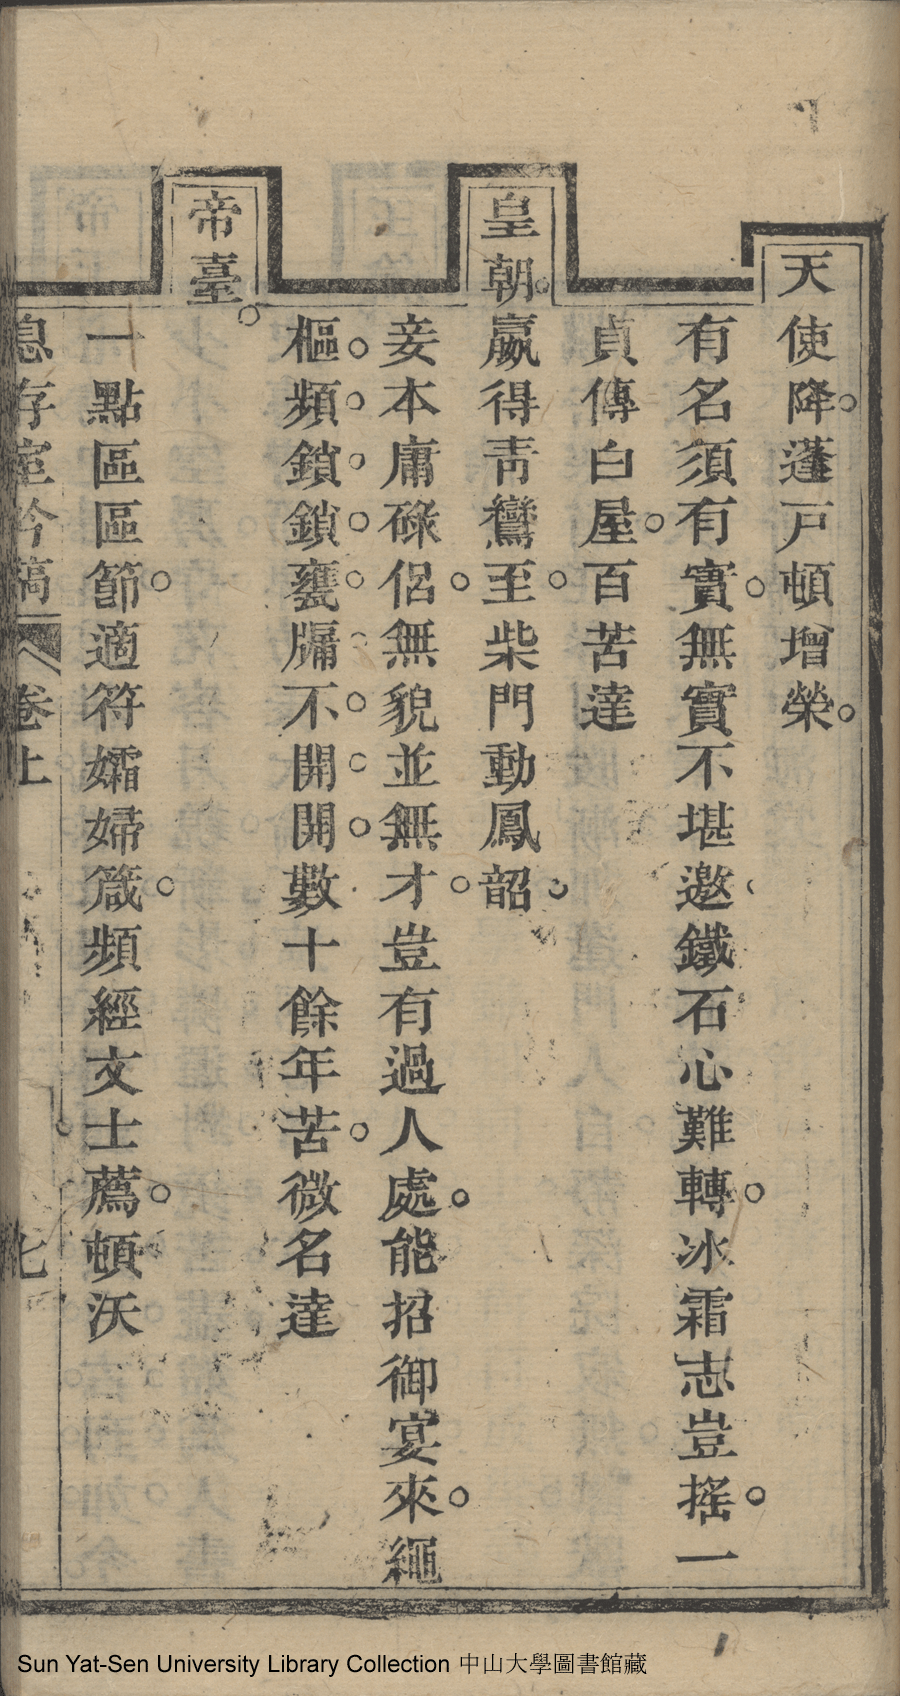 天使降蓬戸頓增榮
有名須有實無實不堪邀鐵石心難轉冰霜志豈搖一
貞傳白屋百苦達
皇朝嬴得靑鸞至柴門動鳳韶
妾本庸碌侶無貌並無才豈有過人處能招御宴來繩
樞頻鎖鎖甕牖不開開數十餘年苦微名達
帝臺
一點區區節適符孀婦箴頻經文士薦頓沃
息存室吟稿 卷上 七
Sun Yat-Sen University Library Collection 中山大學圖書館藏